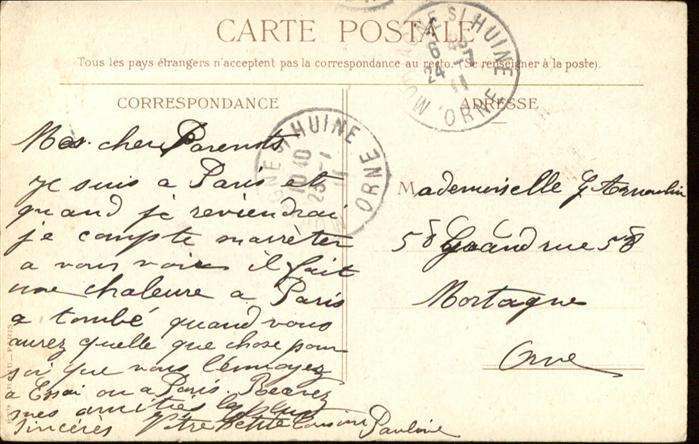 CARTE POSTALE
Tous les pays étrangers n'acceptent pas la correspondance au recto. (Se renseigner à la poste).
CORRESPONDANCE
Mes cher Parents
je suis a Paris et
quand je reviendrai
je compte marrèter
a vous voir il fait
une chaleure a Paris
a tombé quand vous
aurez quelle que chose pour
soi que vous l'envoyez
a Essai ou a Paris. Recevez
mes amitiés les plus
sincères Votre petite cousine Pauline
ADRESSE
Mademoiselle G
58 Grande rue 58
Mortagne
Orne
HUINE
ORNE
24 -7
11
HUINE
ORNE
10 40
25 -7
11